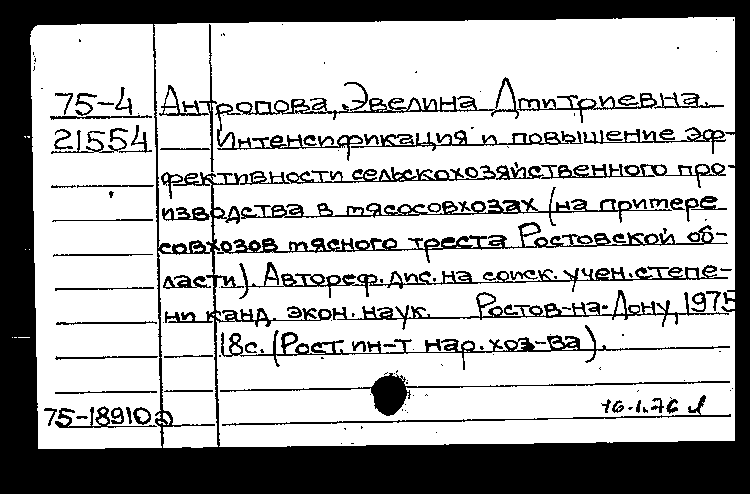 75-4 Антропова, Эвелина Дмитриевна.
21554 Интенсификация и повышение эф-
фективности сельскохозяйственного про-
изводства в мясосовхозах (на примере
совхозов мясного треста Ростовской об-
ласти). Автореф. дис. на соиск. учен. степе-
ни канд. экон. наук. Ростов-на-Дону, 1975
18с. (Рост. ин-т нар. хоз-ва).
75-18910а 16.1.76